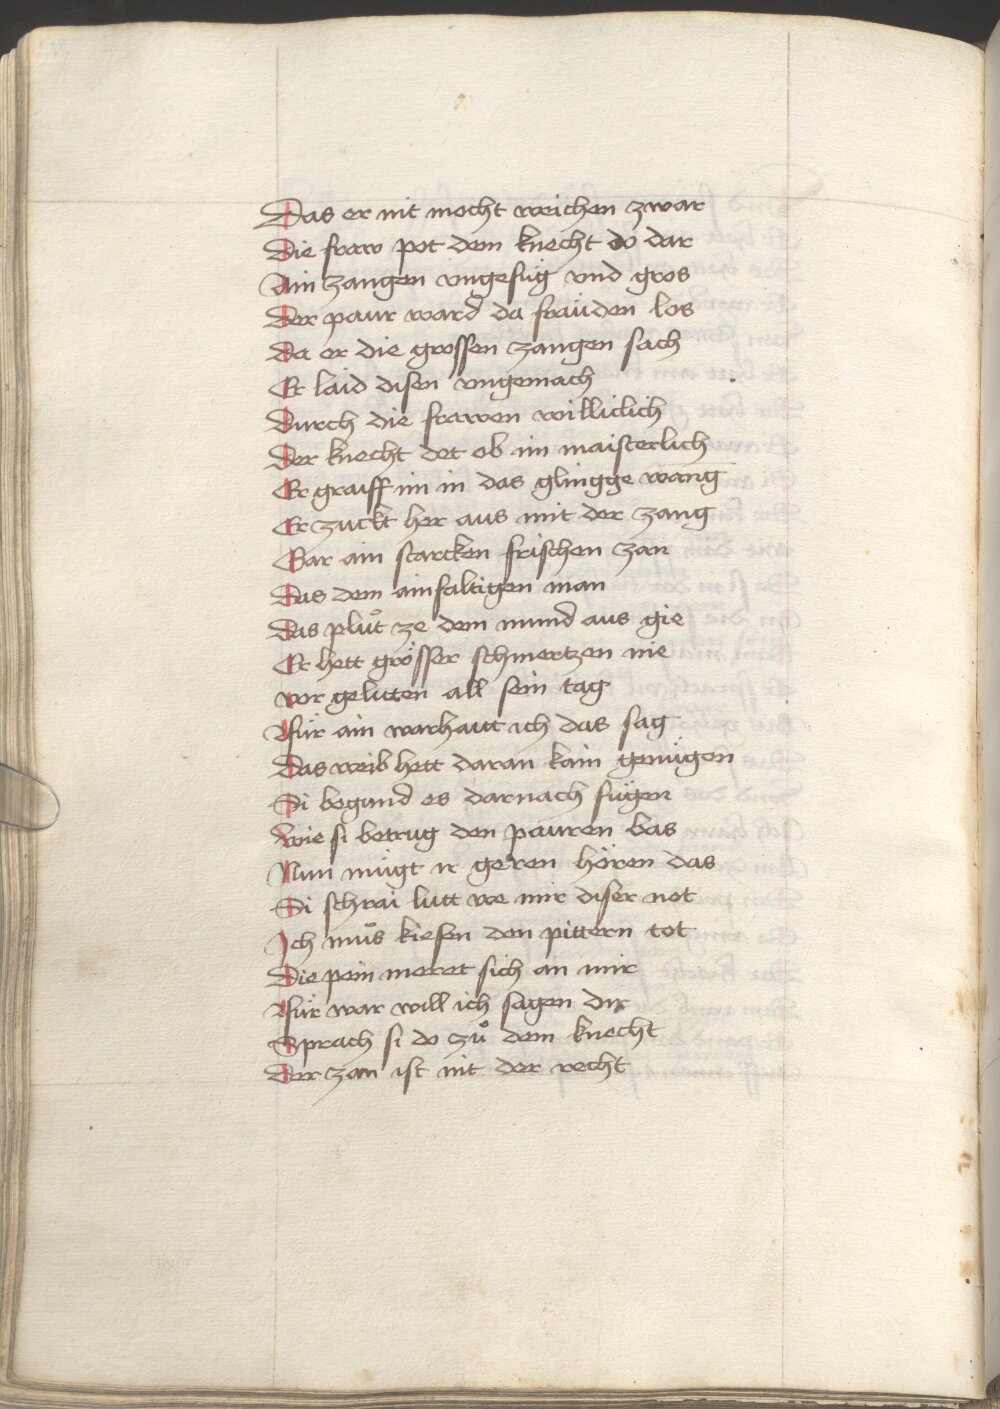 Das er nit mocht weichen zwar
Die fraw pot dem knecht do dar
Ain zangen vngefüg vnd gros
Der paur ward da fräuden los
Da er die grossen zangen sach
Er laid disen vngemach
Durch die frawen williclich
Der knecht det ob im maisterlich
Er graiff im in das glingge wang
Er zuckt her aus mit der zang
Gar ain starcken frischen zan
Das dem ainfaltigen man
Das pluͦt ze dem mund aus gie
Er hett grösser schmertzen nie
vor gelitten all sein tag
Für ain warhait ich das sag
Das weib hett daran kain genügen
Si begund es darnach fügen
Wie si betrug den pauren bas
Nun mügt ir geren hören das
Si schrai lutt we mir diser not
Ich muͦs kiesen den pittern tot
Die pein meret sich an mir
Für war will ich sagen dir
Sprach si do zuͦ dem knecht
Der zan ist nit der recht